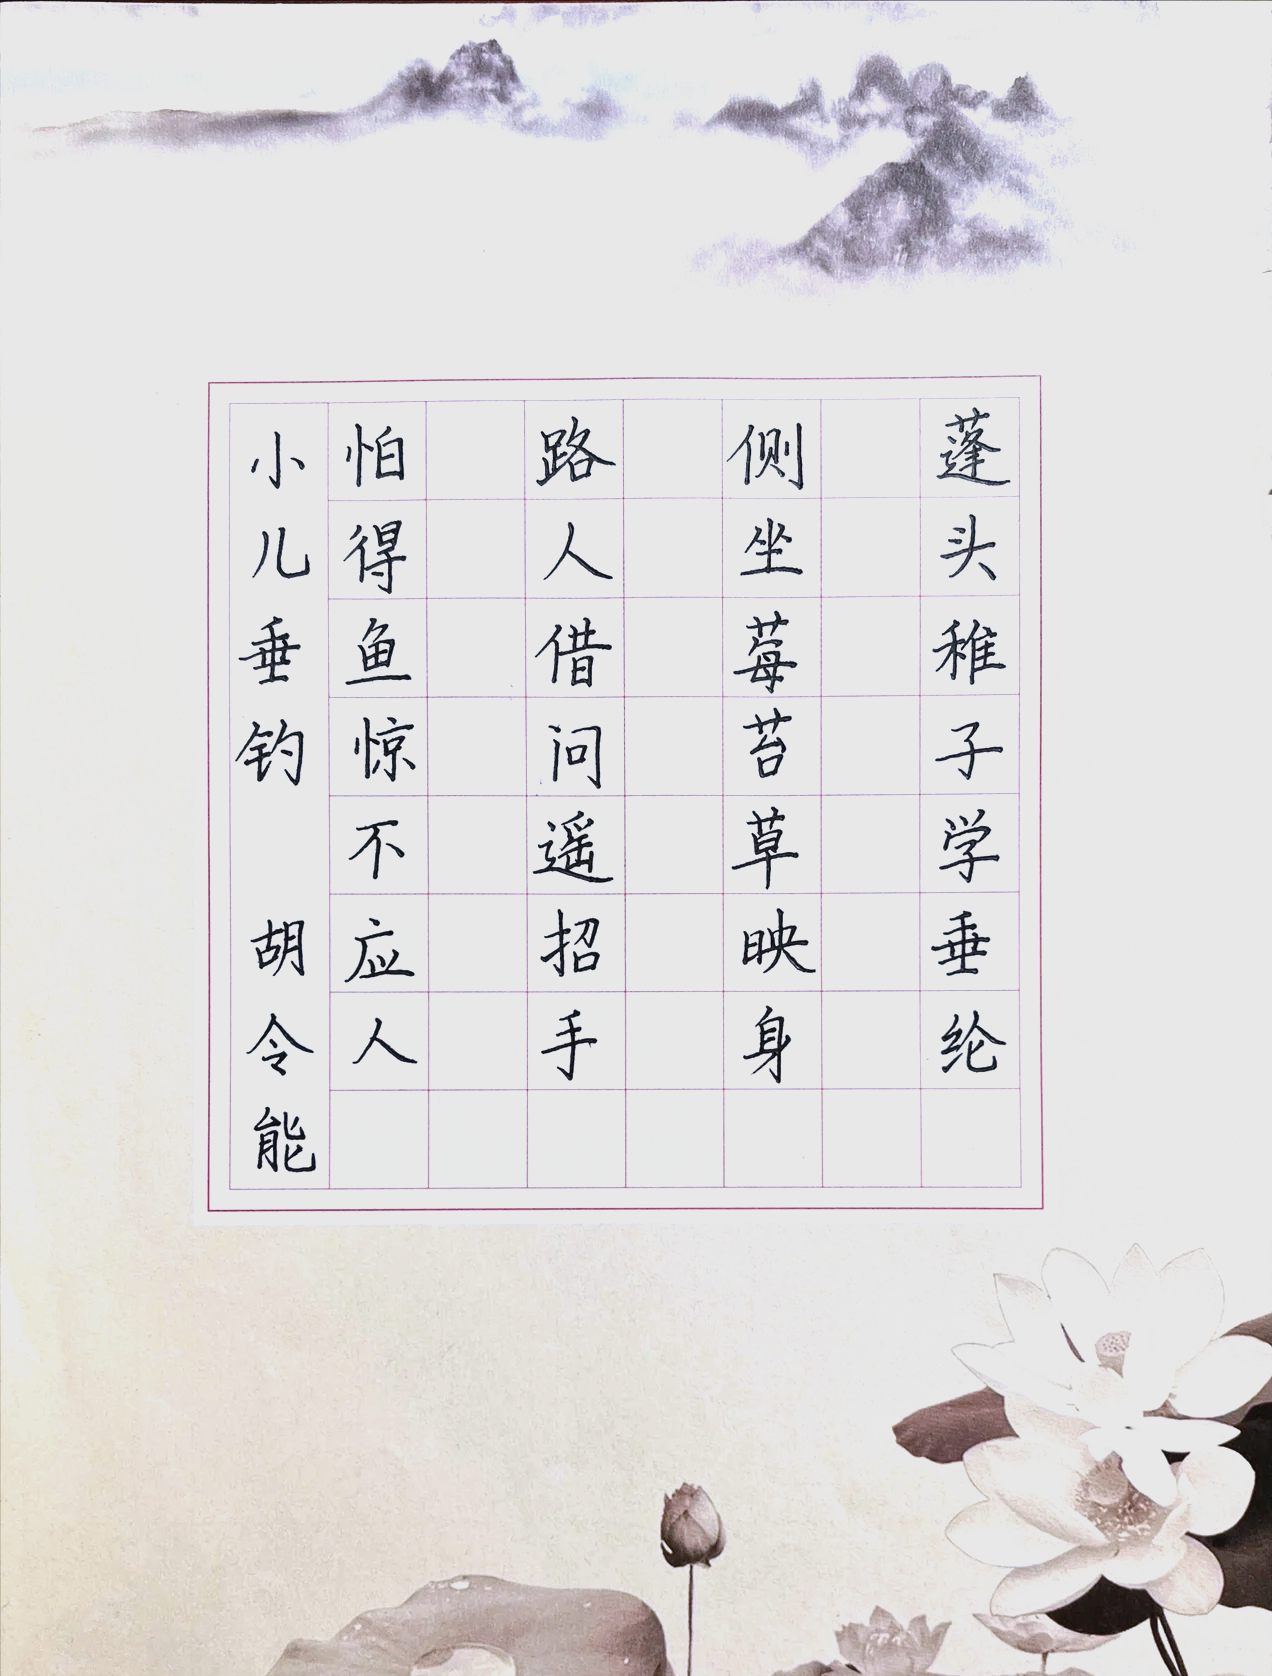 蓬头稚子学垂纶
侧坐莓苔草映身
路人借问遥招手
怕得鱼惊不应人
小儿垂钓 胡令能